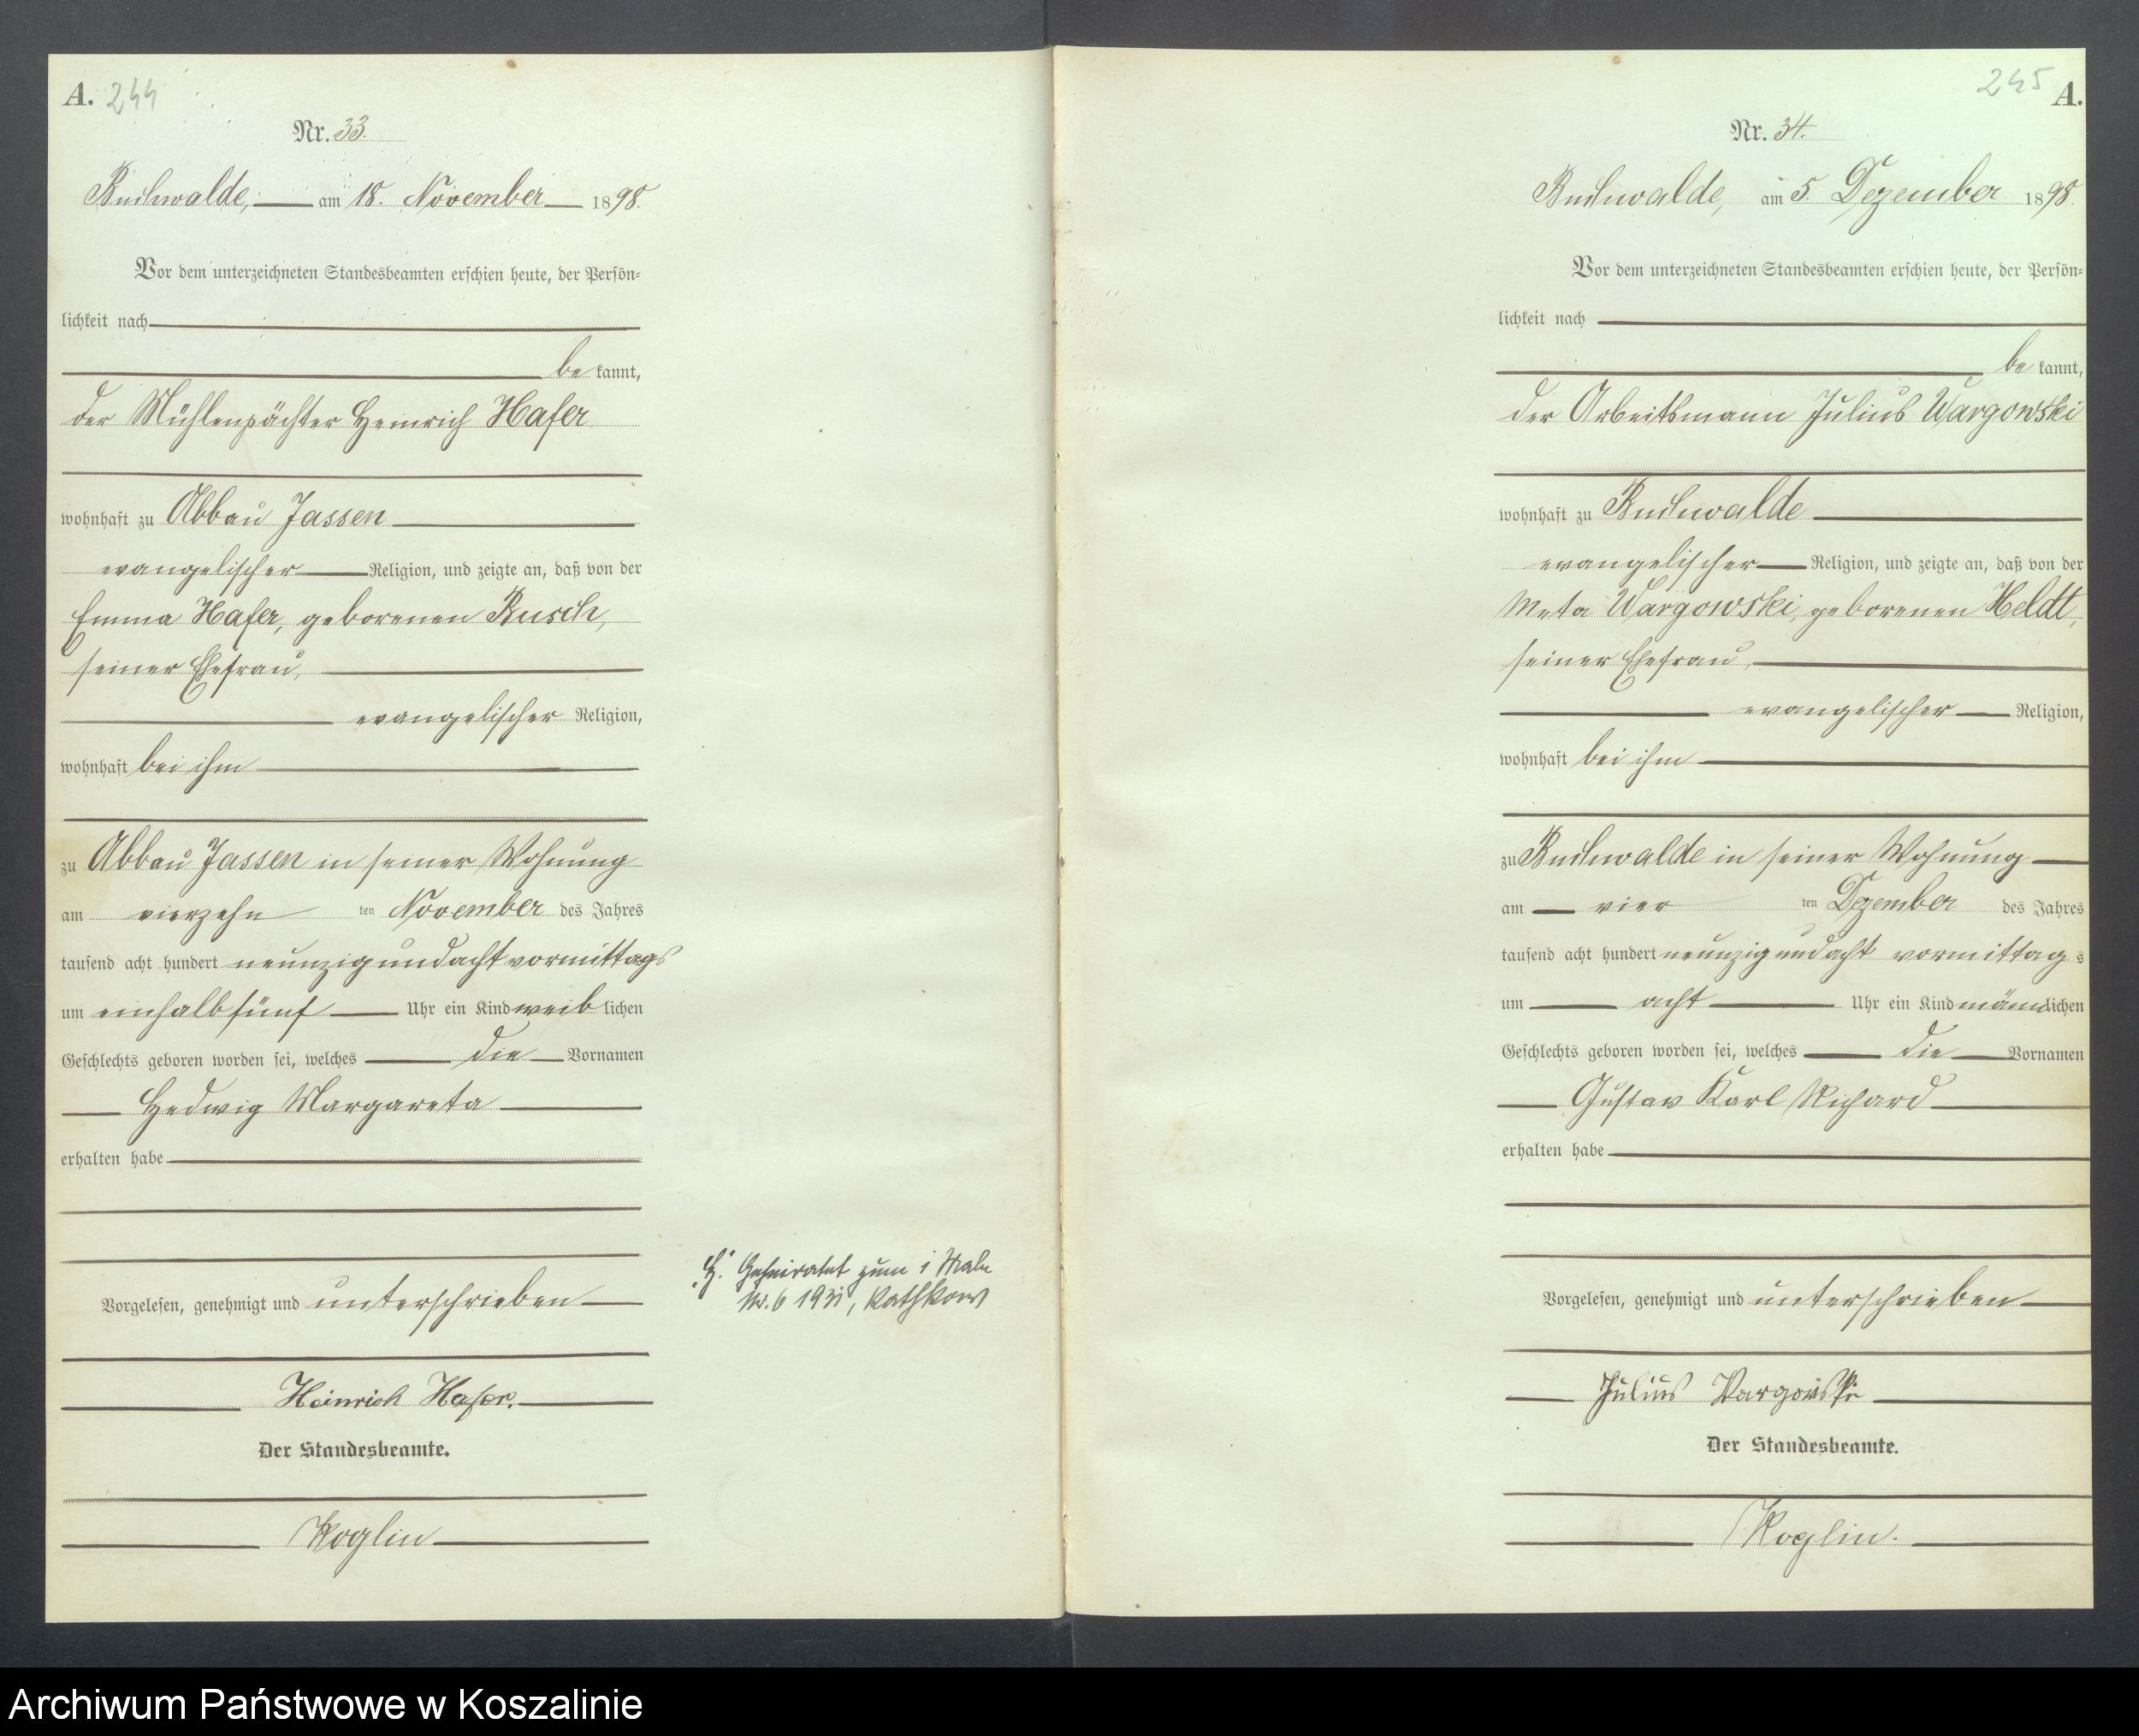 A. 244
Nr. 33.
Buchwalde, am 18. November 1898.
Vor dem unterzeichneten Standesbeamten erschien heute, der Persön=
lichkeit nach
be kannt,
der Mühlenpächter Heinrich Hafer
wohnhaft zu Abbau Jassen
evangelischer Religion, und zeigte an, daß von der
Emma Hafer, geborenen Busch,
seiner Ehefrau,
evangelischer Religion,
wohnhaft bei ihm
zu Abbau Jassen in seiner Wohnung
am vierzehn ten November des Jahres
tausend acht hundert neunzigundacht vormittags
um einhalbfünf Uhr ein Kind weiblichen
Geschlechts geboren worden sei, welches die Vornamen
Hedwig Margareta
erhalten habe
Vorgelesen, genehmigt und unterschrieben
Heinrich Hafer.
Der Standesbeamte.
Koglin
H. Geheiratet zum 1 Male
Nr. 6 1931, Kathkow
245 A.
Nr. 34.
Buchwalde, am 5. Dezember 1898.
Vor dem unterzeichneten Standesbeamten erschien heute, der Persön=
lichkeit nach
be kannt,
der Arbeitsmann Julius Wargowski
wohnhaft zu Buchwalde
evangelischer Religion, und zeigte an, daß von der
Meta Wargowski, geborenen Heldt,
seiner Ehefrau,
evangelischer Religion,
wohnhaft bei ihm
zu Buchwalde in seiner Wohnung
am vier ten Dezember des Jahres
tausend acht hundert neunzigundacht vormittag s
um acht Uhr ein Kind männlichen
Geschlechts geboren worden sei, welches die Vornamen
Gustav Karl Richard
erhalten habe
Vorgelesen, genehmigt und unterschrieben
Julius Wargowski
Der Standesbeamte.
Koglin.
Archiwum Państwowe w Koszalinie